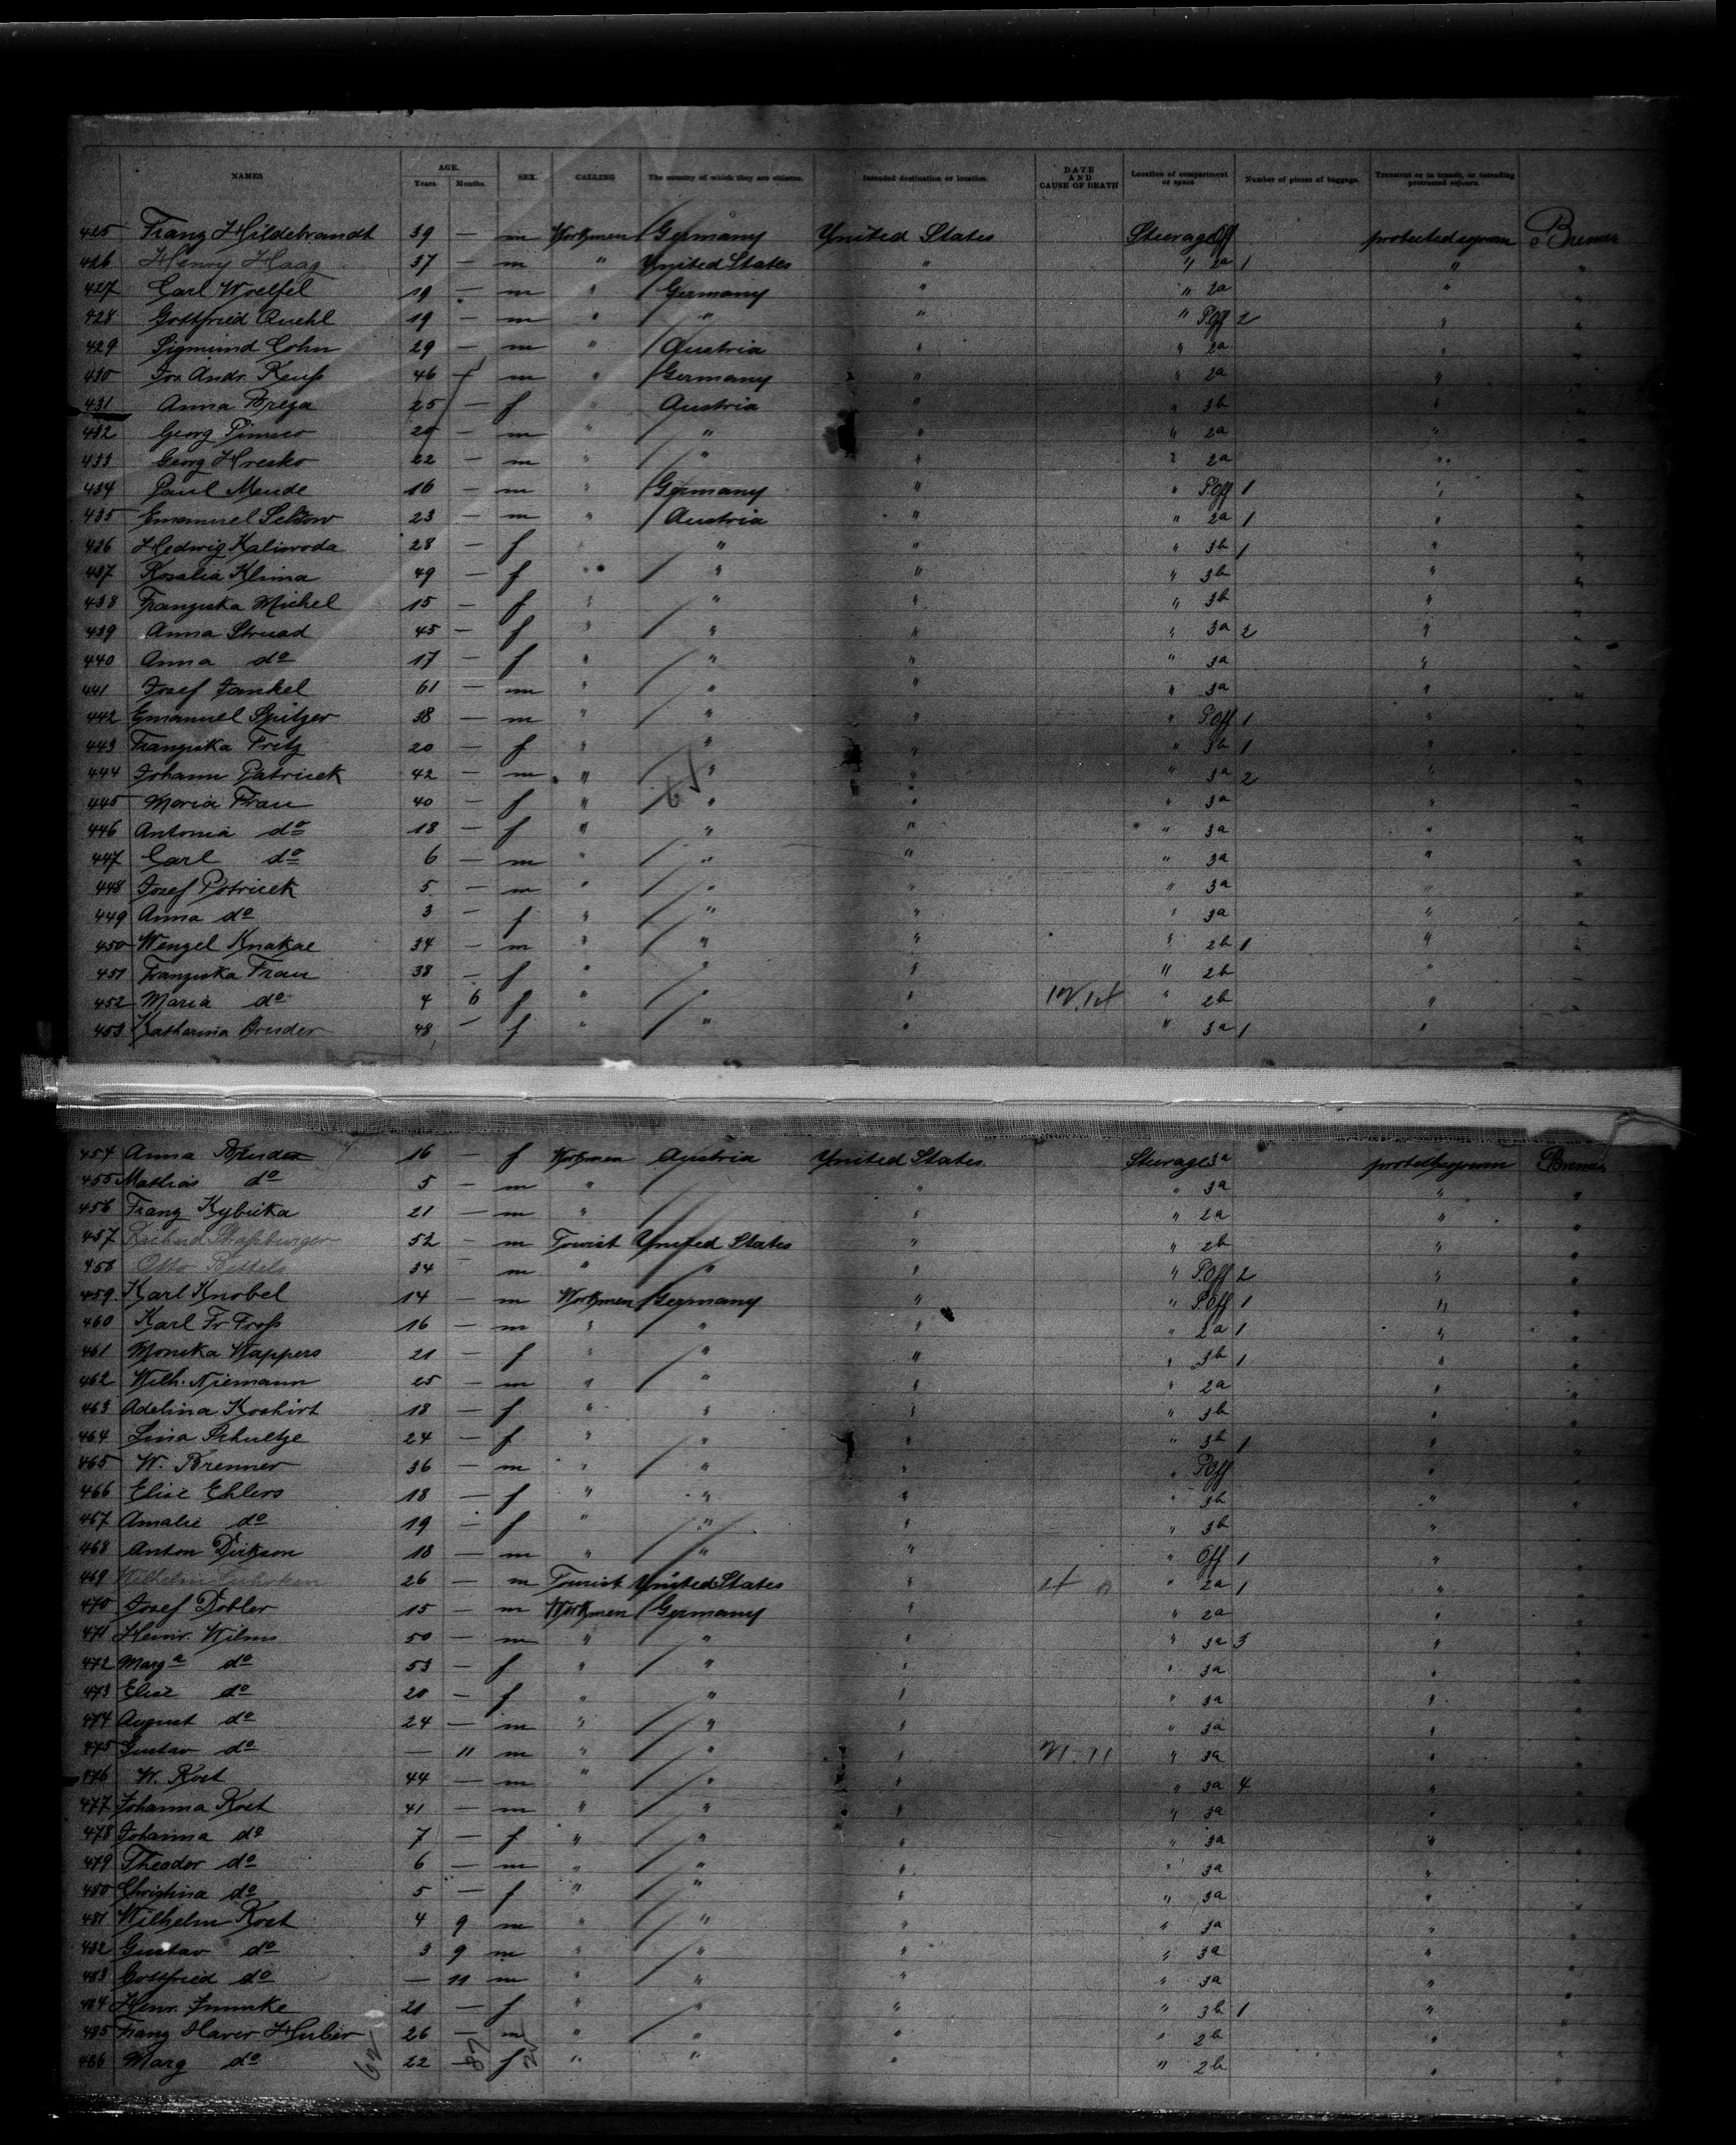 NAMES AGE. Years. Months. SEX. CALLING The country of which they are citizens. Intended destination or location. DATE AND CAUSE OF DEATH Location of compartment or space Number of pieces of baggage. Transient or in transit, or intending protracted sojourn.
425 Franz Hildebrandt 39 — m Workmen Germany United States Steerage Off Bremen
426 Henry Haag 37 — m " United States " " 2a 1 " "
427 Carl Woelfel 19 — m " Germany " " 2a " "
428 Gottfried Ruehl 19 — m " " " " P.Off 2 " "
429 Sigmund Cohn 29 — m " Austria " " 2a " "
430 Jos. Andr. Reuß 46 m " Germany " " 2a " "
431 Anna Brega 25 — f " Austria " " 3b " "
432 Georg — m " " " " 2a " "
433 Georg Hresko 22 — m " " " " 2a " "
434 Paul Mende 16 — m " Germany " " P.Off 1 " "
435 Emanuel 23 — m " Austria " " 2a 1 " "
436 Hedwig Kaliwoda 28 — f " " " " 3b 1 " "
437 Rosalia Klima 49 — f " " " " 3b " "
438 Franziska Michel 15 — f " " " " 3b " "
439 Anna Strnad 45 — f " " " " 3a 2 " "
440 Anna do 17 — f " " " " 3a " "
441 Josef Jankel 61 — m " " " " 3a " "
442 Emanuel Spitzer 38 — m " " " " P.Off 1 " "
443 Franziska Fritz 20 — f " " " " 3b 1 " "
444 Johann Patricek 42 — m " " " " 3a 2 " "
445 Maria Frau 40 — f " " " " 3a " "
446 Antonia do 18 — f " " " " 3a " "
447 Carl do 6 — m " " " " 3a " "
448 Josef Potricek 5 — m " " " " 3a " "
449 Anna do 3 — f " " " " 3a " "
450 Wenzel Knakal 34 — m " " " " 2b 1 " "
451 Franziska Frau 38 — f " " " " 2b " "
452 Maria do 4 6 f " " " " 2b " "
453 Katharina Bruder 48 — f " " " " 3a 1 " "
454 Anna Bruder 16 — f Workmen Austria United States Steerage 3a Bremen
455 Mathias do 5 — m " " " 3a " "
456 Franz Kybicka 21 — m " " " 2a " "
457 Straßburger 52 — m Tourist United States " " 2b " "
458 Otto Bettels 34 m " " " " P.Off 2 " "
459 Karl Knobel 14 — m Workmen Germany " " P.Off 1 " "
460 Karl Fr. Troß 16 — m " " " " 2a 1 " "
461 Monika Wappers 21 — f " " " " 3b 1 " "
462 Wilh. Niemann 25 — m " " " " 2a " "
463 Adelina Koshirt 18 — f " " " " 3b " "
464 Lina Schultze 24 — f " " " " 3b 1 " "
465 W. Brenner 36 — m " " " " P.Off " "
466 Elise Ehlers 18 — f " " " " 3b " "
467 Amalie do 19 — f " " " " 3b " "
468 Anton Dirkson 18 — m " " " " Off 1 " "
469 Wilhelm 26 — m Tourist United States " " 2a 1 " "
470 Josef Dobler 15 — m Workmen Germany " " 2a " "
471 Heinr. Wilms 50 — m " " " " 3a 5 " "
472 Marga do 53 — f " " " " 3a " "
473 Elise do 20 — f " " " " 3a " "
474 August do 24 — m " " " " 3a " "
475 Gustav do — 11 m " " " " 3a " "
476 W. Rost 44 — m " " " " 3a 4 " "
477 Johanna Rost 41 — m " " " " 3a " "
478 Johanna do 7 — f " " " " 3a " "
479 Theodor do 6 — m " " " " 3a " "
480 Christina do 5 — f " " " " 3a " "
481 Wilhelm Rost 4 9 m " " " " 3a " "
482 Gustav do 3 9 m " " " " 3a " "
483 Gottfried do — 11 m " " " " 3a " "
484 Henr. 21 — f " " " " 3b 1 " "
485 Franz Xaver Huber 26 — m " " " " 2b " "
486 Marg do 22 — f " " " " 2b " "